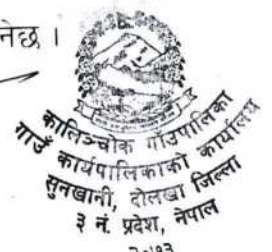 नेछ ।
कालिञ्चोक गाउँपालिका
गाउँ कार्यपालिकाको कार्यालय
सुनखानी, दोलखा जिल्ला
३ नं. प्रदेश, नेपाल
२०७३